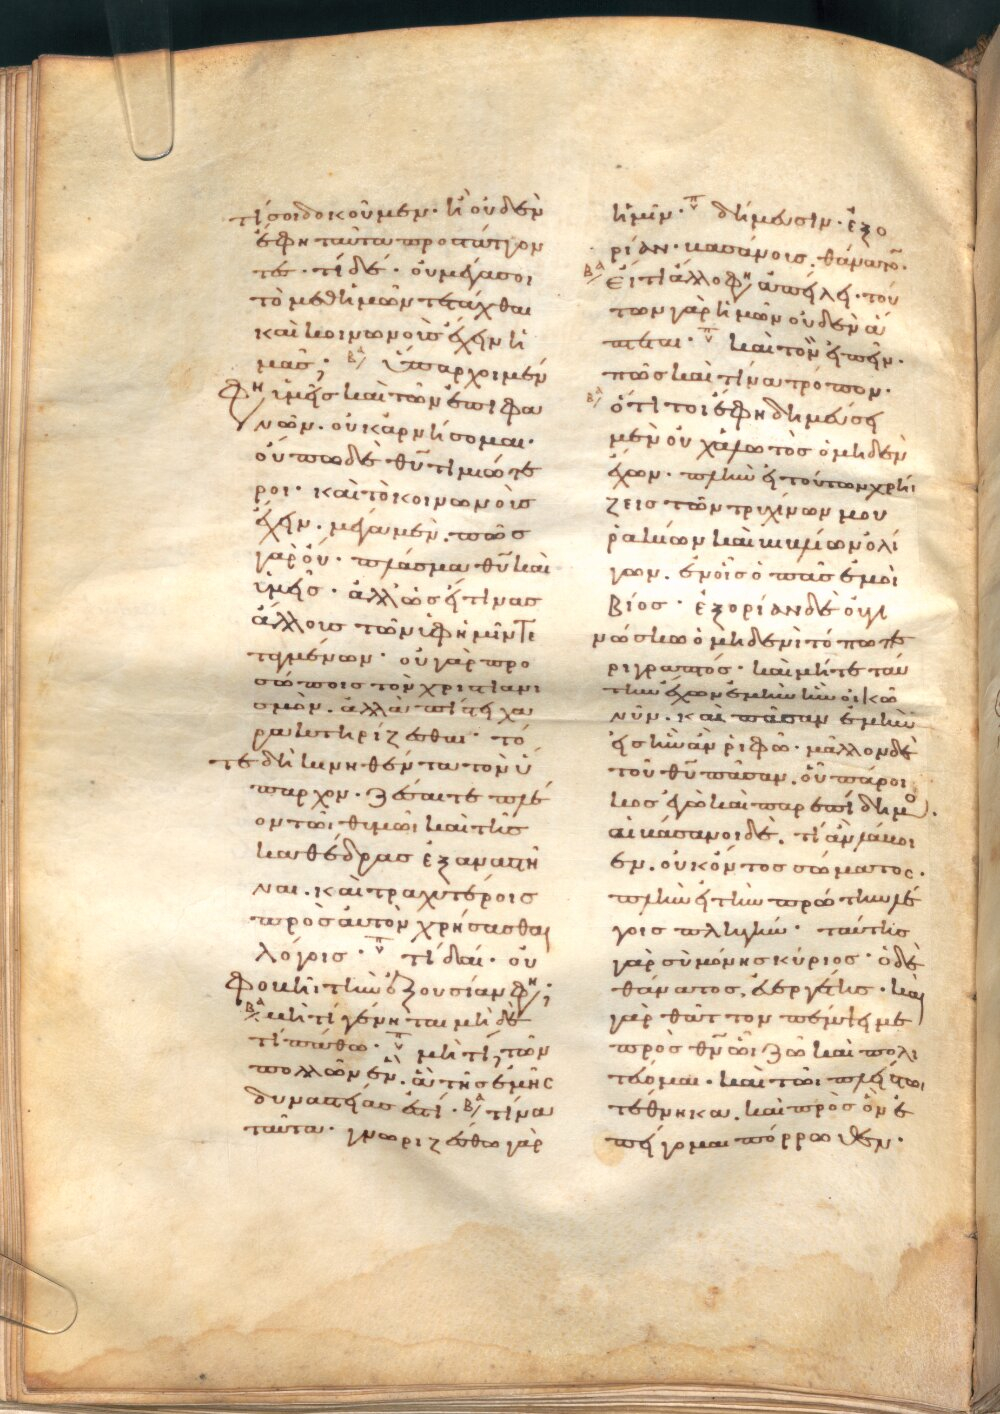 τί σοι δοκοῦμεν· ἢ οὐδὲν
ἔφη ταῦτα προστάττον
τες· τί δέ· οὐ μέγα σοι
τὸ μεθ ἡμῶν τετάχθαι
καὶ κοινωνοὺς ἔχειν ἡ
μᾶς; ΒΑ ὕπαρχοι μέν
φη ὑμεῖς καὶ τῶν ἐπιφα
νῶν· οὐκ ἀρνήσομαι·
οὔπω δὲ θυ τιμιώτε
ροι· καὶ τὸ κοινωνοὺς
ἔχειν· μέγα μέν· πῶς
γὰρ οὔ· πλάσμα θυ καὶ
ὑμεῖς· ἀλλ ὡς εἴ τινας
ἄλλους τῶν ὑφ ἡμῖν τε
ταγμένων· οὐ γὰρ προ
σώποις τὸν χριστιανι
σμόν· ἀλλὰ πίστει χα
ρακτηρίζεσθαι· τό
τε δὴ κινηθέντα τὸν ὕ
παρχον· ζέσαι τε πλέ
ον τῶι θυμῶι καὶ τῆς
καθέδρας ἐξαναστῆ
ναι· καὶ τραχυτέροις
πρὸς αὐτὸν χρήσασθαι
λόγοις· Π τί δαί· οὐ
φοβῆι τὴν ἐξουσίαν φη;
ΒΑ μὴ τί γένηται μὴ δὲ
τί πάθω· Π μή τι τῶν
πολλῶν ἕν· ἃ τῆς ἐμῆς
δυναστείας ἐστί· ΒΑ τίνα
ταῦτα· γνωριζέσθω γὰρ
ἡμῖν· Π δήμευσιν· ἐξο
ρίαν· βασάνους· θάνατο·
ΒΑ εἴ τι ἄλλο φη ἀπείλει· τού
των γὰρ ἡμῶν οὐδὲν ἅ
πτεται· Π καὶ τὸν εἰπεῖν·
πῶς καὶ τίνα τρόπον·
ΒΑ ὅτι τοι ἔφη δημεύσει
μὲν οὐχ ἁλωτὸς ὁ μηδὲν
ἔχων· πλὴν εἰ τούτων χρήι
ζεις τῶν τριχίνων μου
ῥακίων καὶ βιβλίων ὀλί
γων· ἐν οἷς ὁ πᾶς ἐμοὶ
βίος· ἐξορίαν δὲ οὐ γι
νώσκω ὁ μηδενὶ τόπω πε
ριγραπτός· καὶ μήτε ταύ
την ἔχων ἐμὴν ἣν οἰκῶ
νῦν· καὶ πᾶσαν ἐμὴν
εἰς ἣν ἂν ῥιφῶ· μᾶλλον δὲ
τοῦ θυ πᾶσαν· οὗ πάροι
κος ἐγὼ καὶ παρεπίδημο·
αἱ βάσανοι δὲ· τί ἂν λάβοι
εν· οὐκ ὄντος σώματος·
πλὴν εἰ τὴν πρώτην λέ
γοις πληγήν· ταύτης
γὰρ σὺ μόνης κύριος· ὁ δὲ
θάνατος· εὐεργέτης· καὶ
γὰρ θᾶττον πέμψει με
πρὸς θν ὧι ζῶ καὶ πολι
τεύομαι· καὶ τῶι πλείστωι
τέθνηκα· καὶ πρὸς ὃν ἐ
πείγομαι πόρρωθεν·